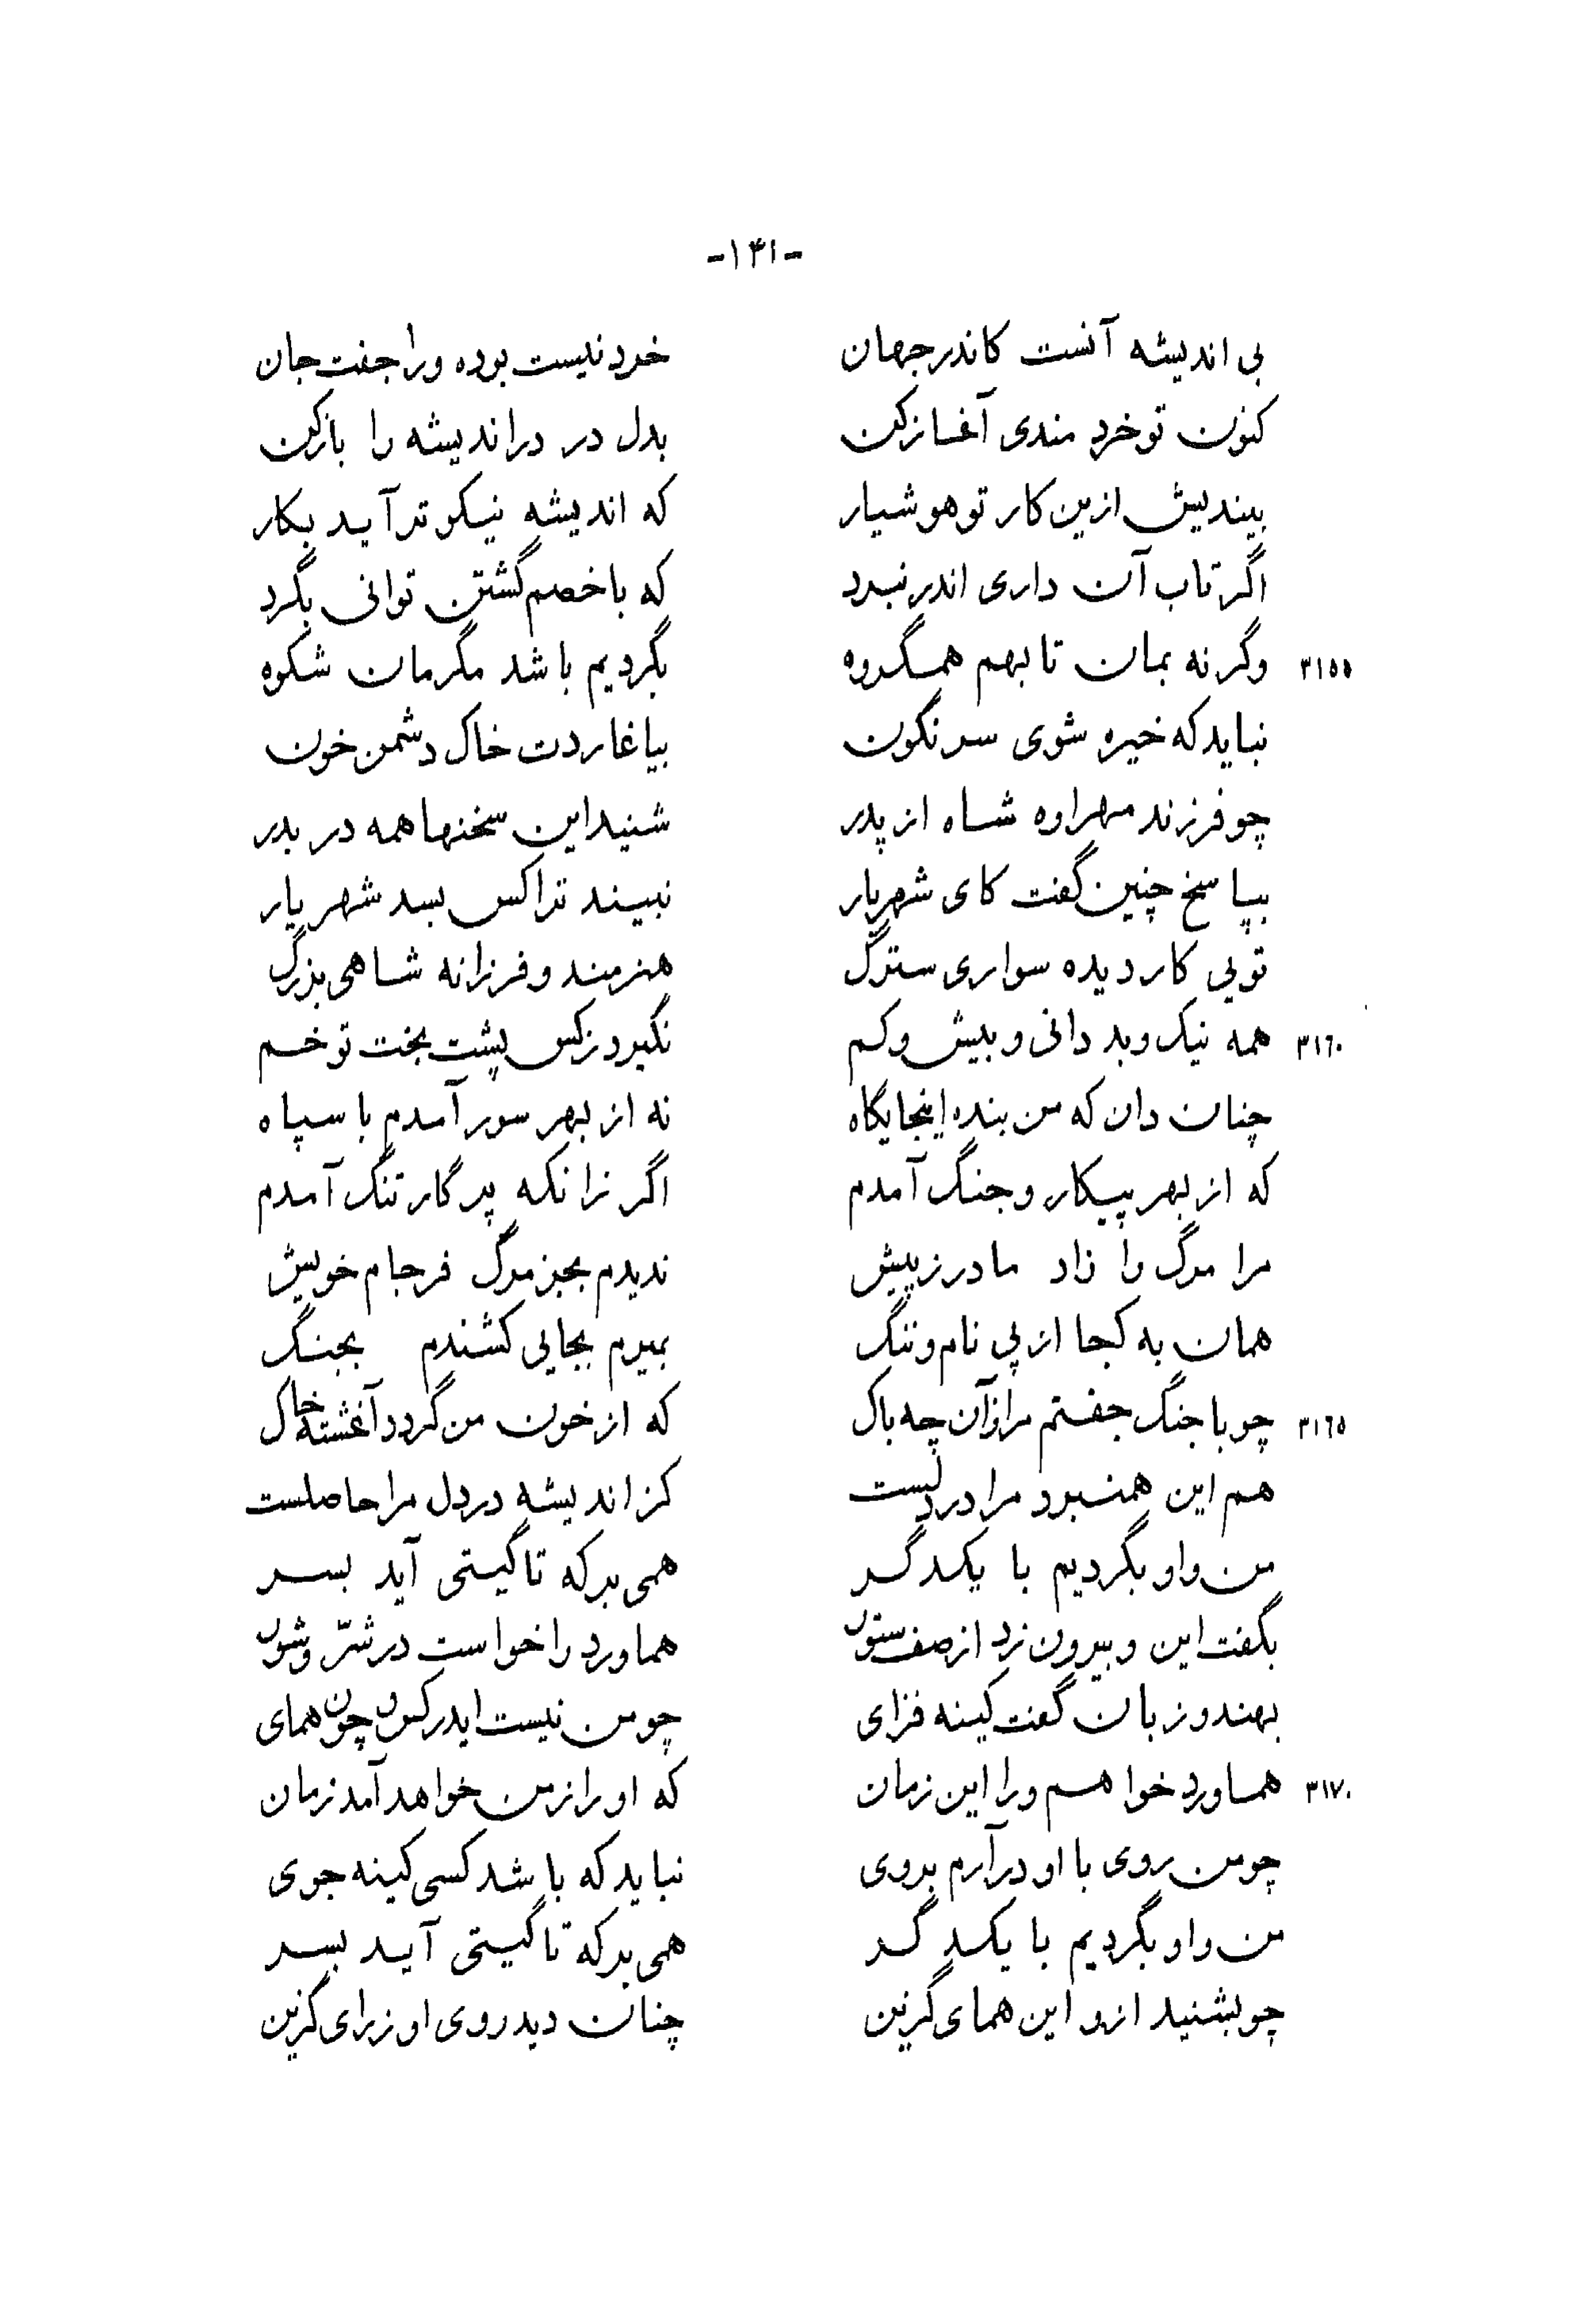 -۱۴۱-
بی اندیشه آنست کاندر جهان خرد نیست بوده ورا جفت جان
کنون تو خرد مندی آغاز کن بدل در در اندیشه را باز کن
بیندیش ازین کار تو هوشیار که اندیشه نیکوتر آید بکار
اگر تاب آن داری اندر نبرد که با خصم گشتن توانی بگرد
۳۱۵۵ وگر نه بمان تا بهم همگروه بگردیم باشد مگرمان شکوه
نباید که خیره شوی سرنگون بیاغاردت خاک دشمن خون
چو فرزند مهراوه شاه از پدر شنید این سخنها همه در بدر
بپاسخ چنین گفت کای شهریار نبیند ترا کس بسد شهریار
تویی کار دیده سواری سترگ هنرمند و فرزانه شاهی بزرگ
۳۱۶۰ همه نیک و بد دانی و بیش و کم نگیرد زکس پشت بخت تو خم
چنان دان که من بنده اینجایگاه نه از بهر سور آمدم با سپاه
که از بهر پیکار و جنگ آمدم اگر زانکه پرگار تنگ آمدم
مرا مرگ را زاد مادر ز پیش ندیدم بجز مرگ فرجام خویش
همان به کجا از پی نام و ننگ بمیرم بجایی کشندم بجنگ
۳۱۶۵ چو با جنگ جفتم مرا زآن چه باک که از خون من گردد آغشته خاک
هم این همنبرد مرا در دلست کز اندیشه در دل مرا حاصلست
من و او بگردیم با یکدگر همی بر که تا گیتی آید بسر
بگفت این و بیرون زد از صف ستور هماورد را خواست در شرّ و شور
بهندو زبان گفت کینه فزای چو من نیست ایدر کس چون همای
۳۱۷۰ هماورد خواهم ورا این زمان که او را ز من خواهد آمد زمان
چو من روی با او درآرم بروی نباید که باشد کسی کینه جوی
من و او بگردیم با یکدگر همی بر که تا گیتی آید بسر
چو بشنید ازو این همای گزین چنان دید روی او ز رای گزین